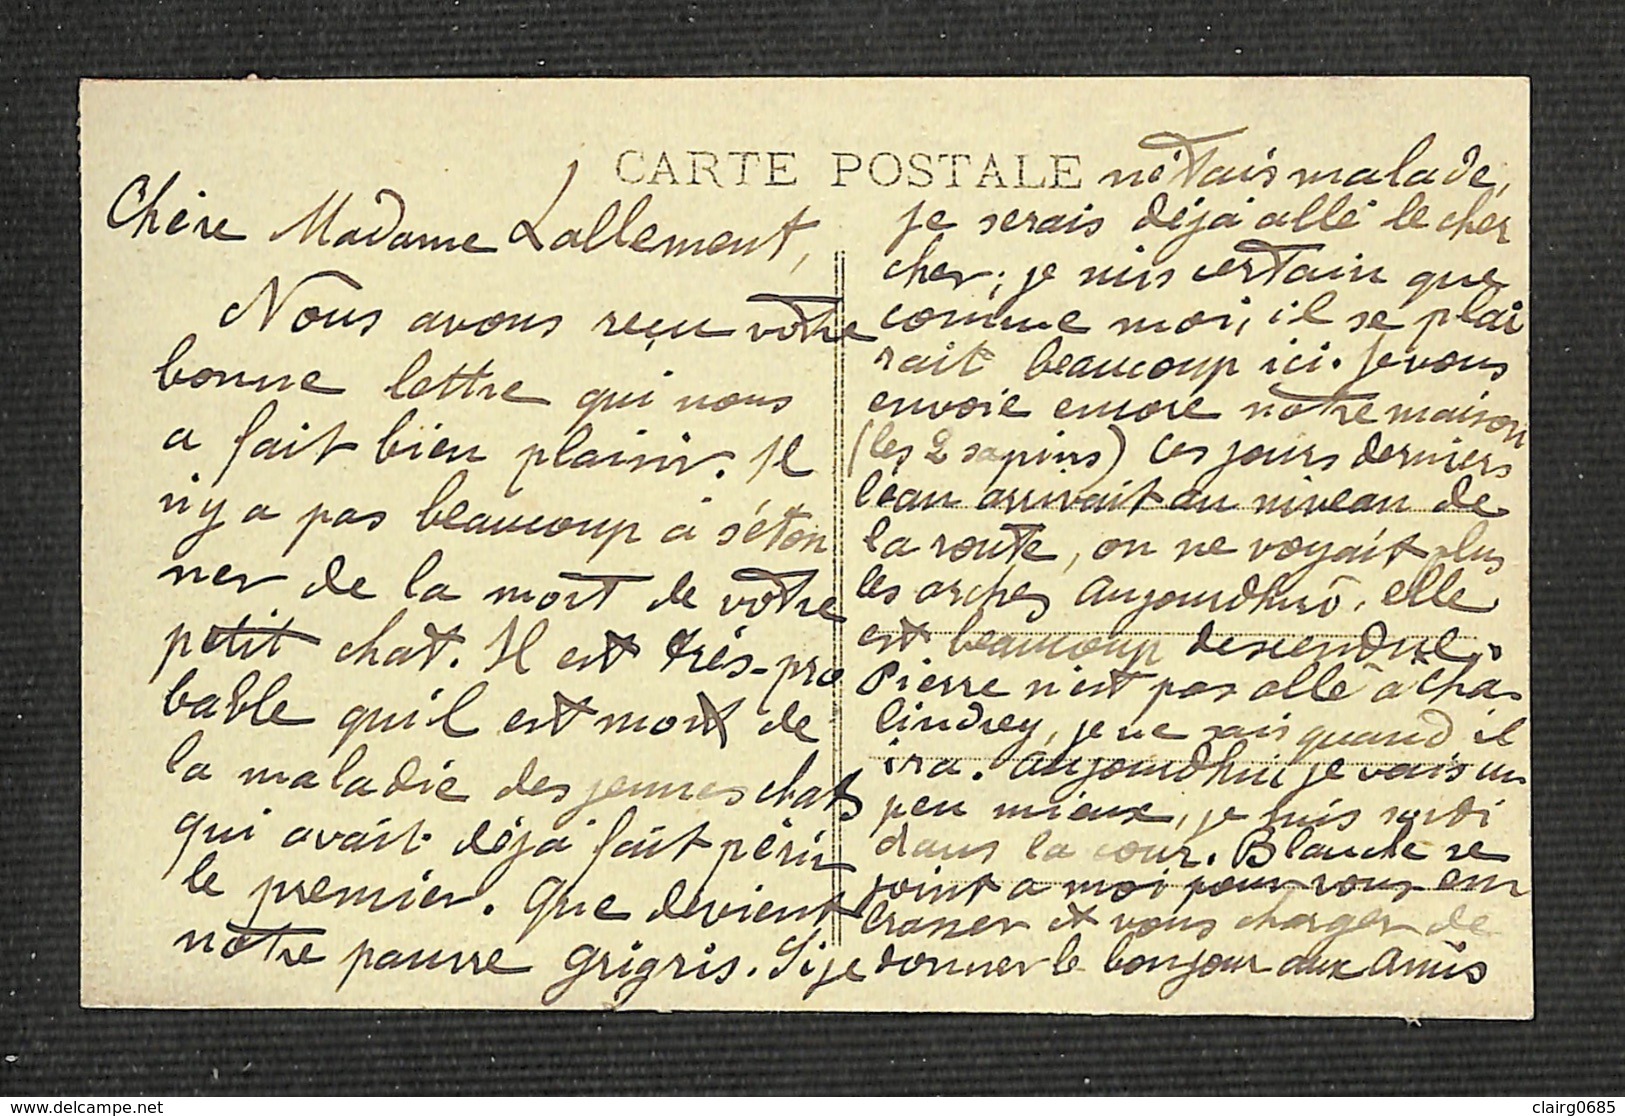 CARTE POSTALE
Chère Madame Lallement,
Nous avons reçu votre
bonne lettre qui nous
a fait bien plaisir. Il
n'y a pas beaucoup à s'éton
ner de la mort de votre
petit chat. Il est très-pro
bable qu'il est mort de
la maladie des jeunes chats
qui avait déjà fait périr
le premier. Que devient
notre pauvre grigris. Si je
n'étais malade,
je serais déjà allé le cher
cher; je suis certain que
comme moi, il se plai
rait beaucoup ici. Je vous
envoie encore notre maison
(les 2 sapins) Ces jours derniers
l'eau arrivait au niveau de
la route, on ne voyait plus
les arches aujourd'hui, elle
est beaucoup descendue.
Pierre n'est pas allé à Cha-
lindrey, je ne sais quand il
ira. Aujourd'hui je vais un
peu mieux, je suis sorti
dans la cour. Blanche se
joint a moi pour vous em
brasser et vous charger de
donner le bonjour aux amis
clairg0685